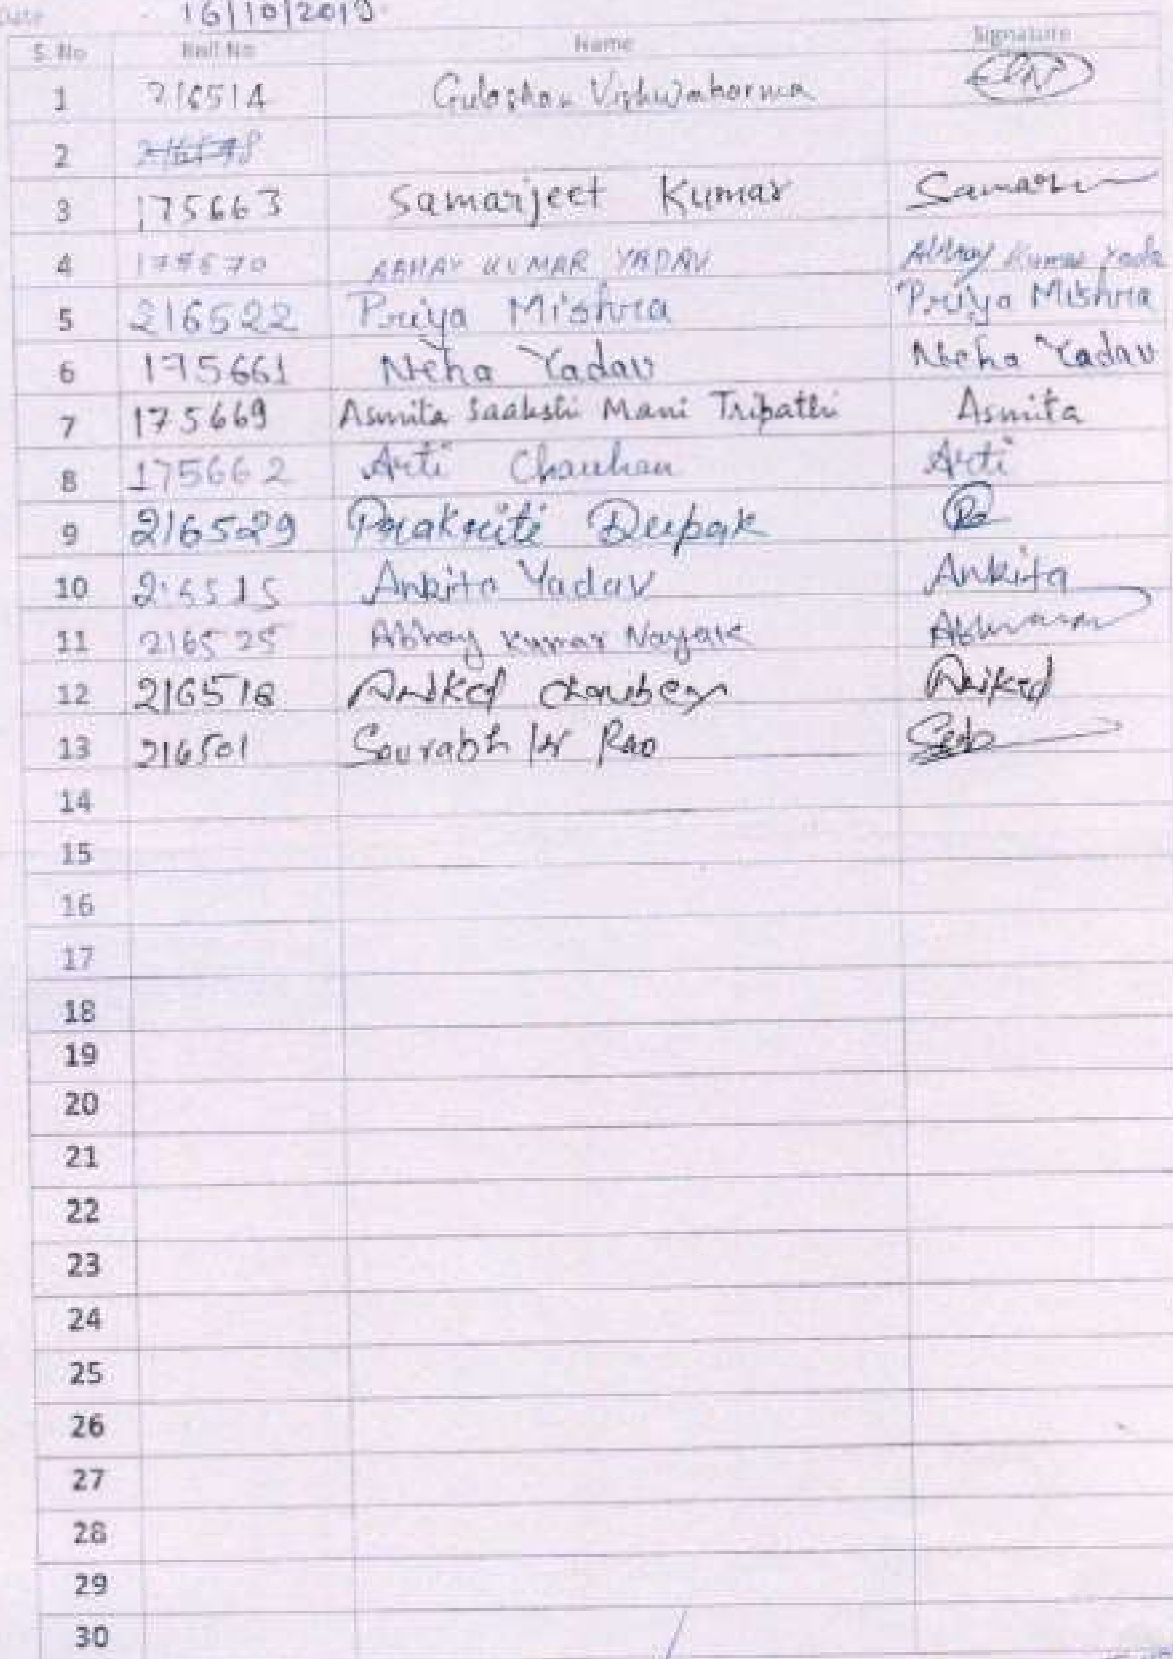 Date 16/10/2019
S. No Roll No Name Signature
1 216514 Gulashan Vishwakarma
2
3 175663 Samarjeet Kumar Samar
4 175670 ABHAY KUMAR YADAV Abhay Kumar Yada
5 216522 Priya Mishra Priya Mishra
6 175661 Neha Yadav Neha Yadav
7 175669 Asmita Saakshi Mani Tripathi Asmita
8 175662 Arti Chauhan Arti
9 216529 Prakriti Deepak
10 216515 Ankita Yadav Ankita
11 216525 Abhay Kumar Nayak
12 216518 Aniket Chaubey Aniket
13 216501 Sourabh Kr Rao
14
15
16
17
18
19
20
21
22
23
24
25
26
27
28
29
30